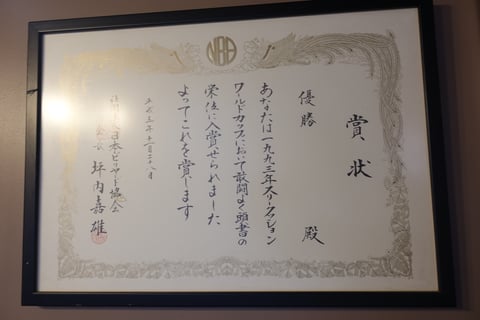 NBA
賞状
優勝 殿
あなたは一九九三年スリークッション
ワールドカップにおいて敢闘よく頭書の
栄位に入賞せられました
よってこれを賞します
平成五年十一月二十八日
日本ビリヤード協会
会長 坪内嘉雄